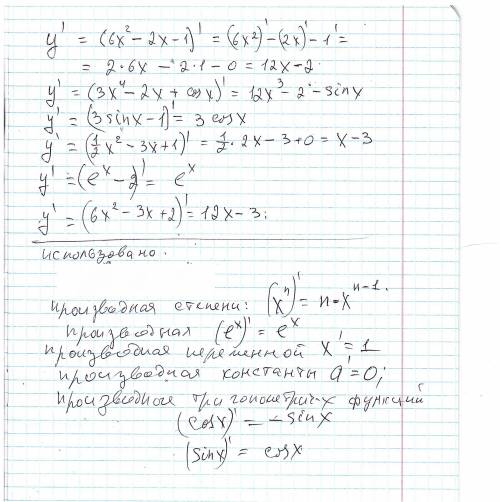 y' = (6x² - 2x - 1)' = (6x²)' - (2x)' - 1' =
= 2·6x - 2·1 - 0 = 12x - 2
y' = (3x⁴ - 2x + cosx)' = 12x³ - 2 - sinx
y' = (3sinx - 1)' = 3cosx
y' = (½x² - 3x + 1)' = ½·2x - 3 + 0 = x - 3
y' = (eˣ - 2)' = eˣ
y' = (6x² - 3x + 2)' = 12x - 3;
использовано.
производная степени: (xⁿ)' = n·xⁿ⁻¹.
производная (eˣ)' = eˣ
производная переменной x' = 1
производная константы a' = 0;
производное тригонометрич-х функций
(cosx)' = -sinx
(sinx)' = cosx